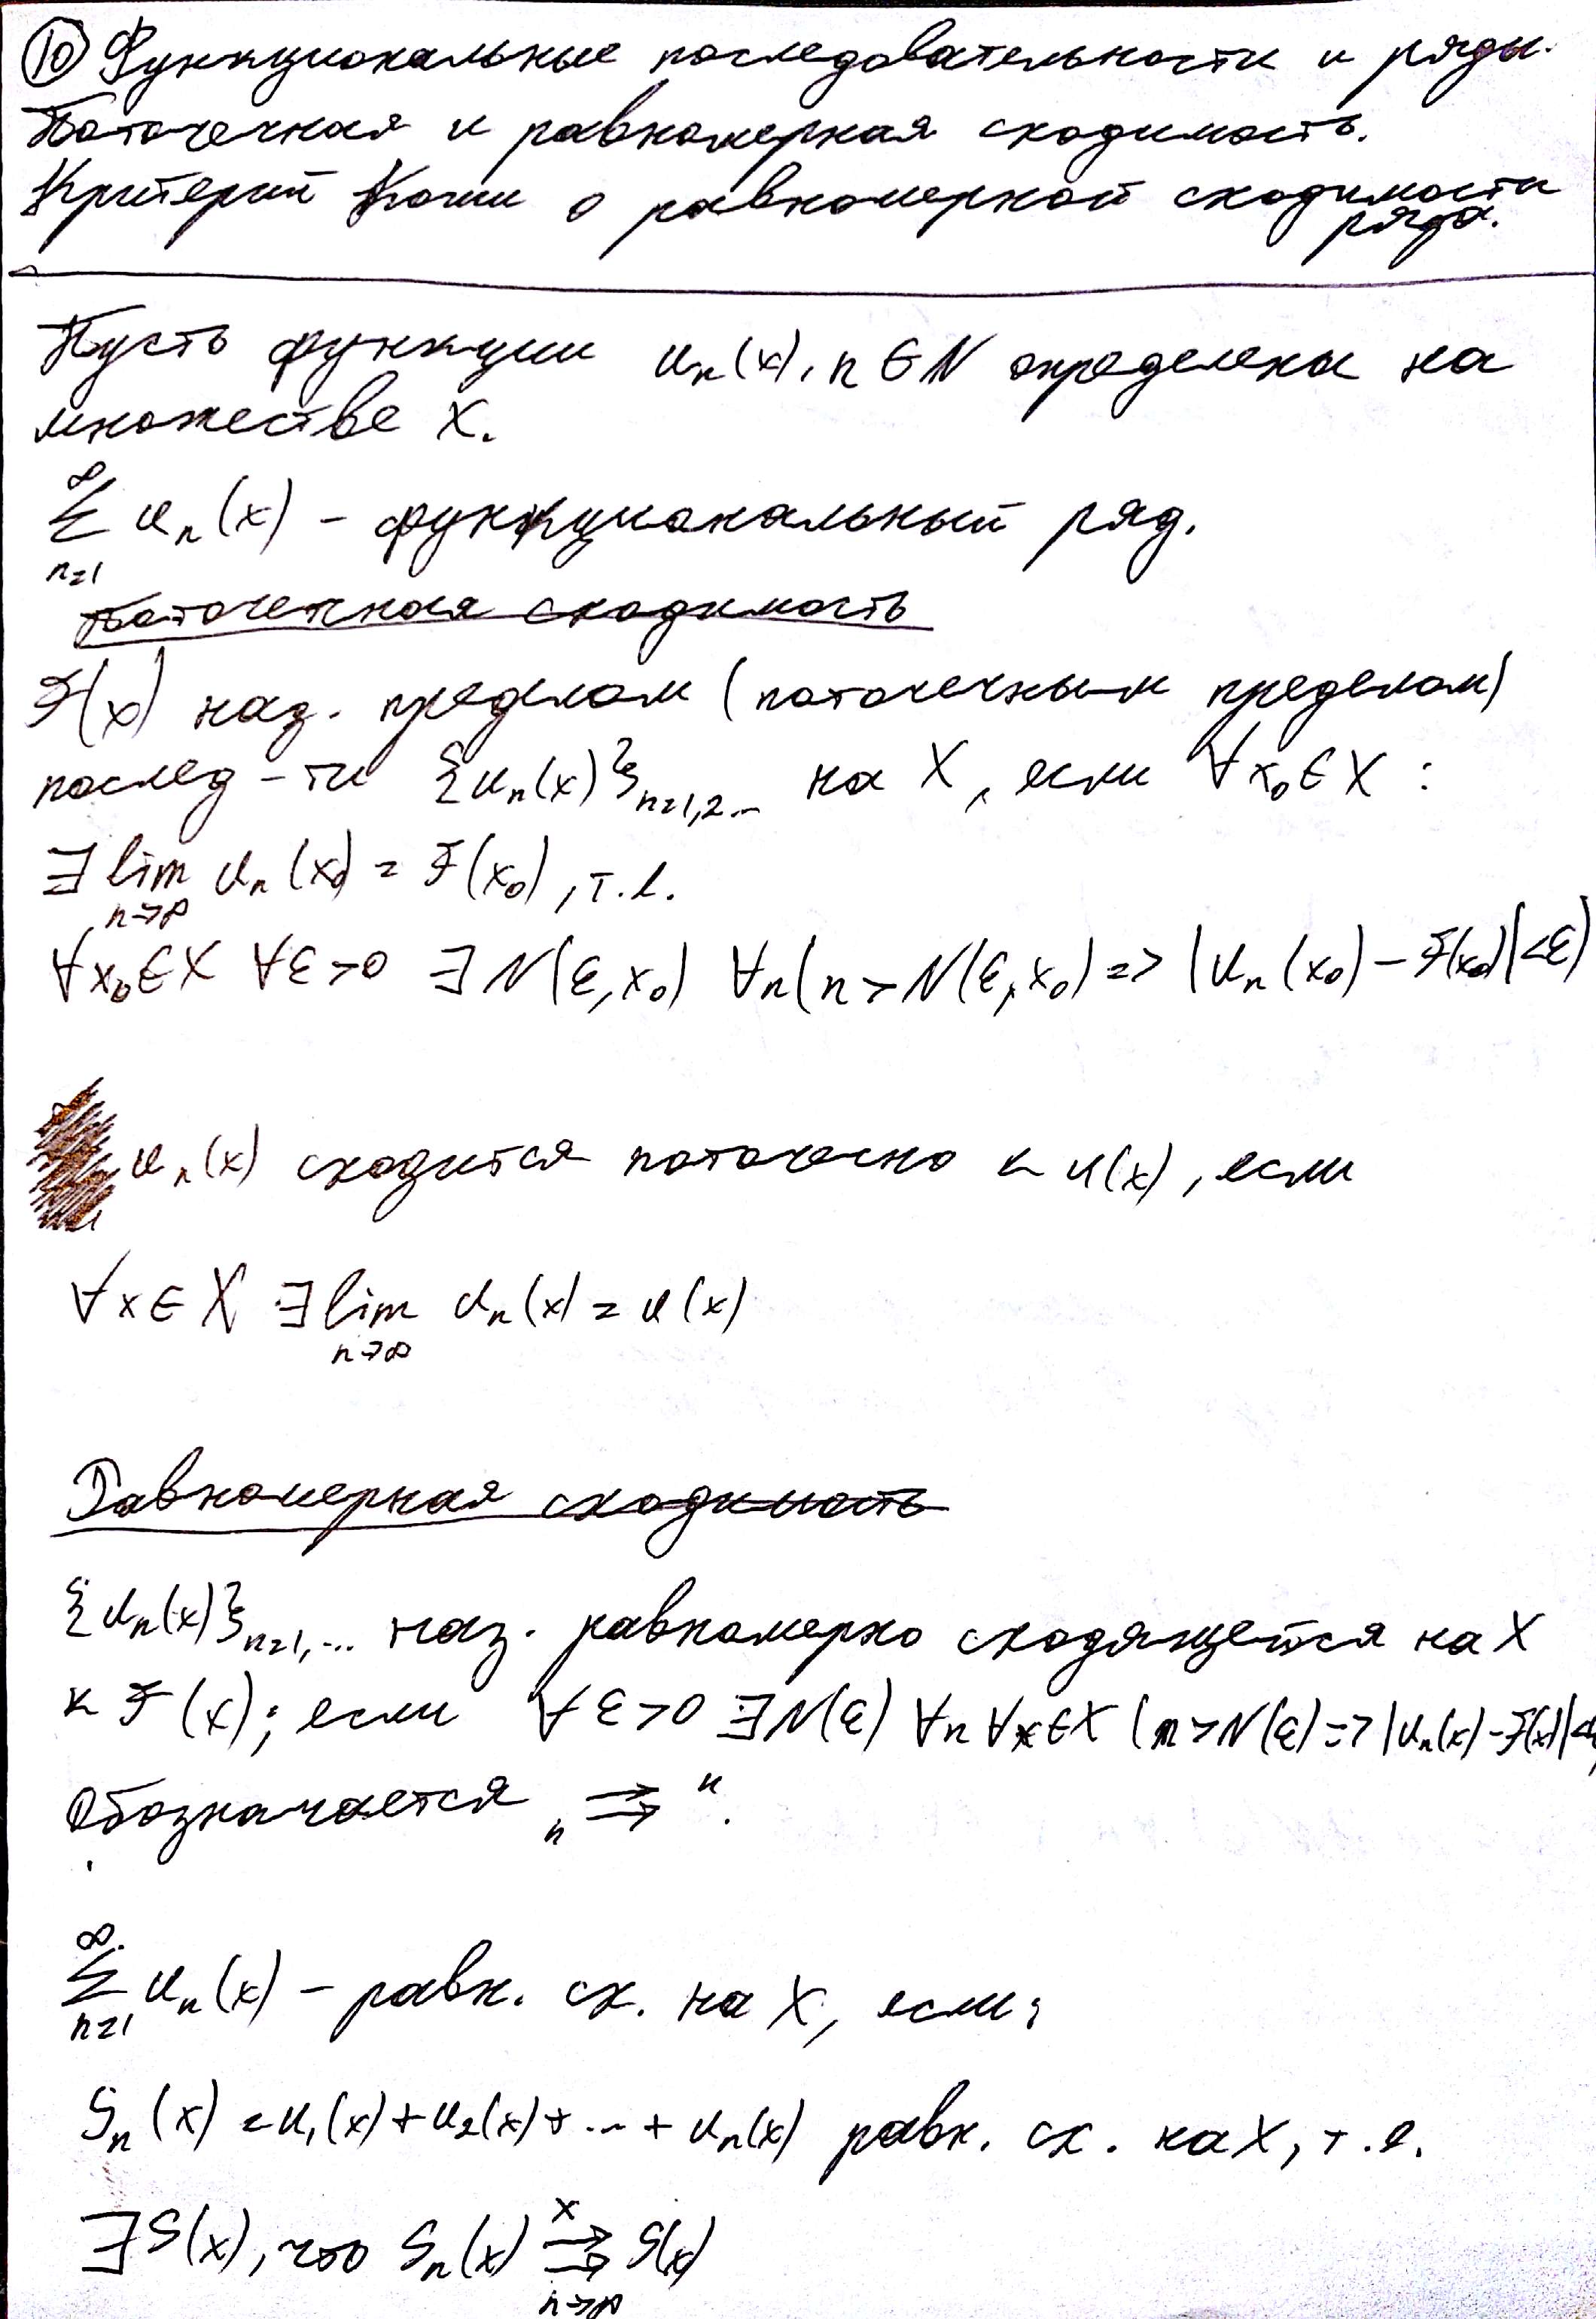 ⑩ Функциональные последовательности и ряды.
Поточечная и равномерная сходимость.
Критерий Коши о равномерной сходимости
ряда.
Пусть функции uₙ(x), n ∈ N определены на
множестве X.
∑ₙ₌₁^∞ uₙ(x) – функциональный ряд.
Поточечная сходимость
F(x) наз. пределом (поточечным пределом)
послед-ти {uₙ(x)}ₙ₌₁,₂... на X, если ∀x₀ ∈ X :
∃ lim_{n→∞} uₙ(x₀) = F(x₀), т.е.
∀x₀ ∈ X ∀ε > 0 ∃ N(ε, x₀) ∀n (n > N(ε, x₀) => |uₙ(x₀) – F(x₀)| < ε)
uₙ(x) сходится поточечно к u(x), если
∀x ∈ X ∃ lim_{n→∞} uₙ(x) = u(x)
Равномерная сходимость
{uₙ(x)}ₙ₌₁,... наз. равномерно сходящейся на X
к F(x); если ∀ε > 0 ∃N(ε) ∀n ∀x ∈ X (n > N(ε) => |uₙ(x) – F(x)| < ε
Обозначается „⇉“.
∑ₙ₌₁^∞ uₙ(x) – равн. сх. на X, если:
Sₙ(x) = u₁(x) + u₂(x) + ... + uₙ(x) равн. сх. на X, т.е.
∃ S(x), что Sₙ(x) ⇉^X_{n→∞} S(x)